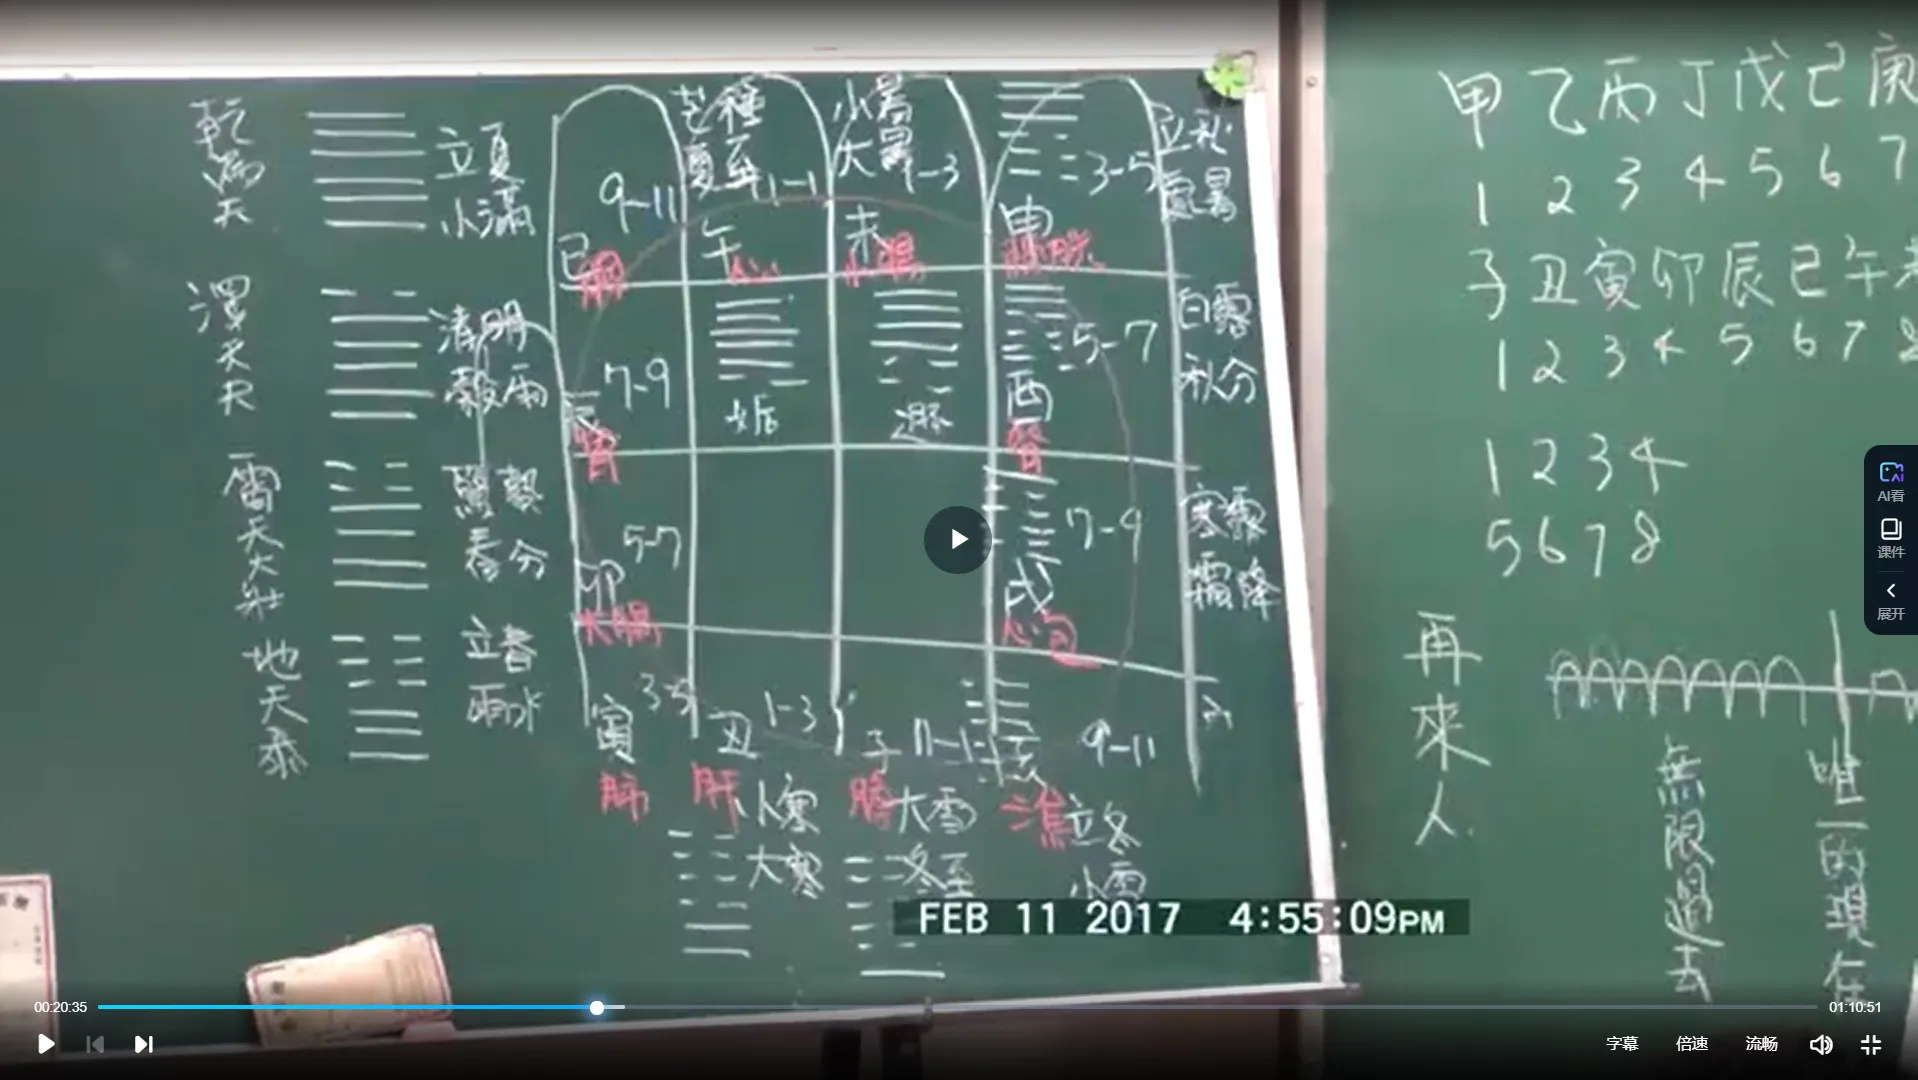 乾為天
立夏
小滿
澤天夬
清明
穀雨
雷天大壯
驚蟄
春分
地天泰
立春
雨水
芒種
夏至
小暑
大暑
立秋
處暑
9-11
11-1
1-3
3-5
巳
午
未
申
心
小腸
膀胱
白露
秋分
7-9
5-7
辰
胃
姤
遯
酉
腎
寒露
霜降
5-7
7-9
卯
大腸
戌
心包
寅 3-5
丑 1-3
子 11-1
亥 9-11
肺
肝
膽
三焦
小寒
大寒
大雪
冬至
立冬
小雪
甲乙丙丁戊己庚
1 2 3 4 5 6 7
子丑寅卯辰巳午未
1 2 3 4 5 6 7 8
1 2 3 4
5 6 7 8
再來人
無限過去
唯一的現在
FEB 11 2017 4:55:09PM
AI看
课件
展开
00:20:35
01:10:51
字幕
倍速
流畅